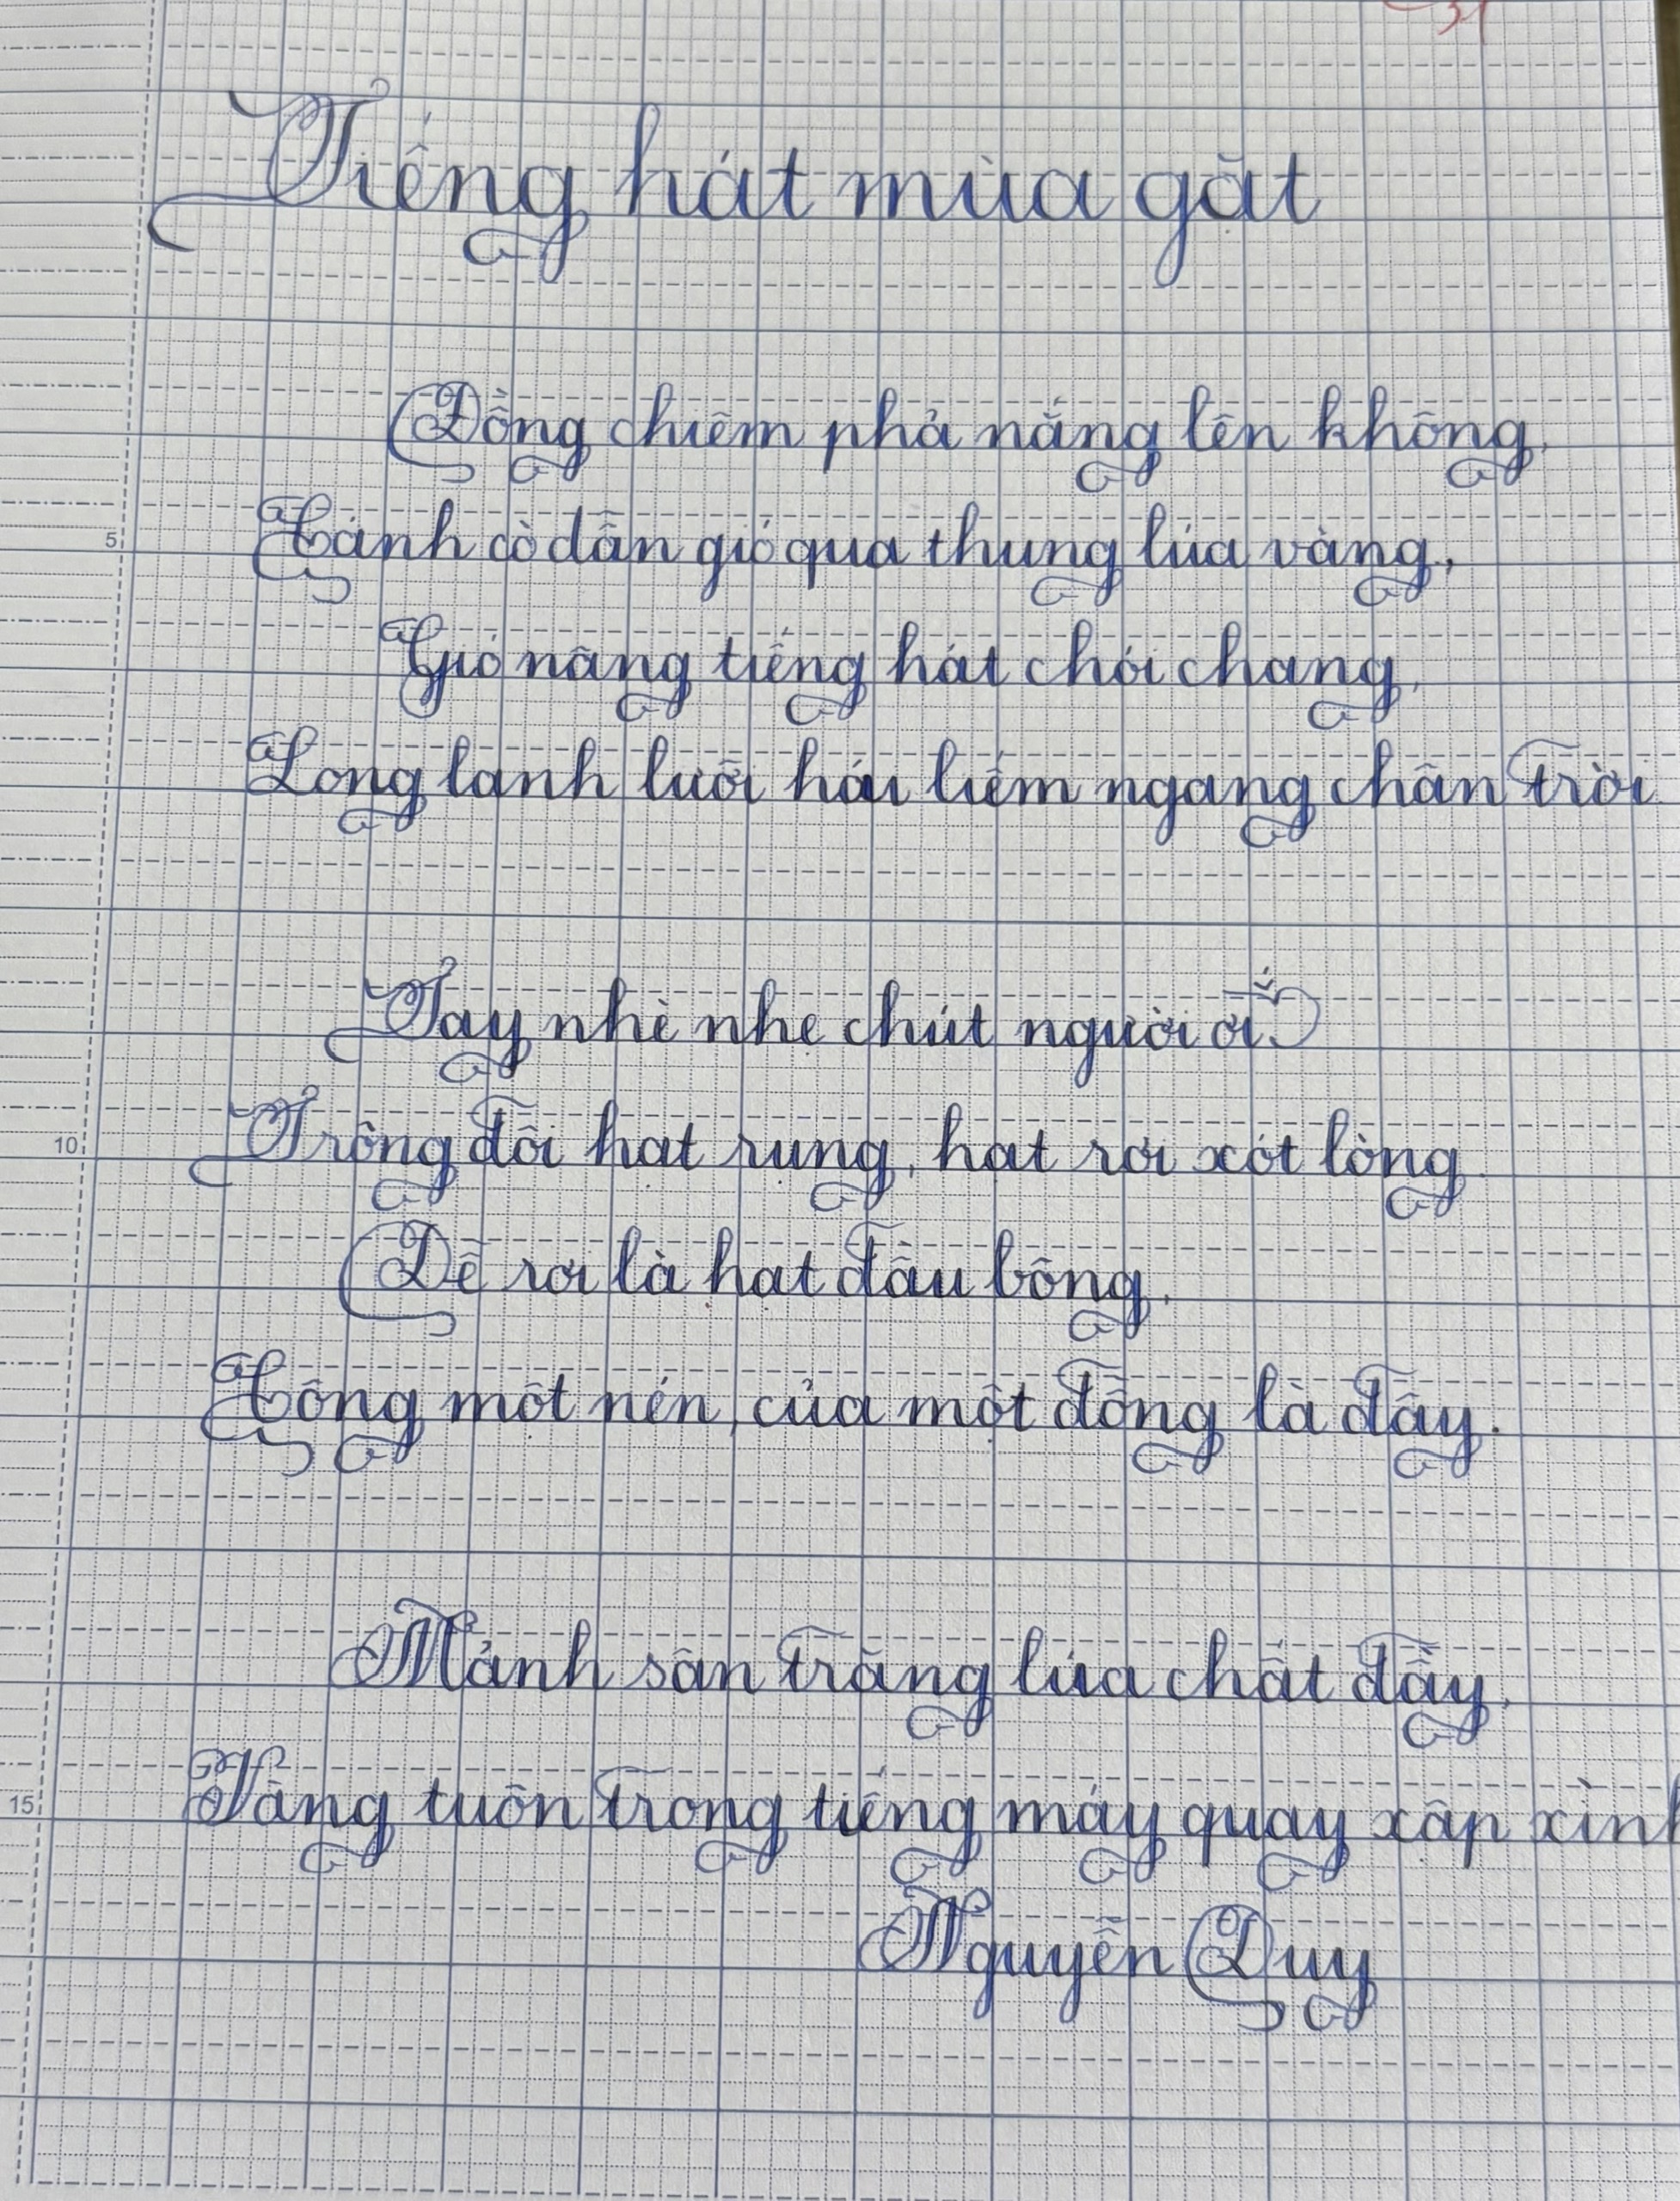 Tiếng hát mùa gặt
Đồng chiêm phả nắng lên không,
Cánh cò dẫn gió qua thung lúa vàng,
Gió nâng tiếng hát chói chang,
Long lanh lưỡi hái liếm ngang chân trời
Tay nhè nhẹ chút người ơi
Trông đôi hạt rụng, hạt rơi xót lòng
Dễ rơi là hạt đầu bông,
Công một nén, của một đồng là đây.
Mảnh sân trăng lúa chất đầy,
Vàng tuôn trong tiếng máy quay xập xình
Nguyễn Duy